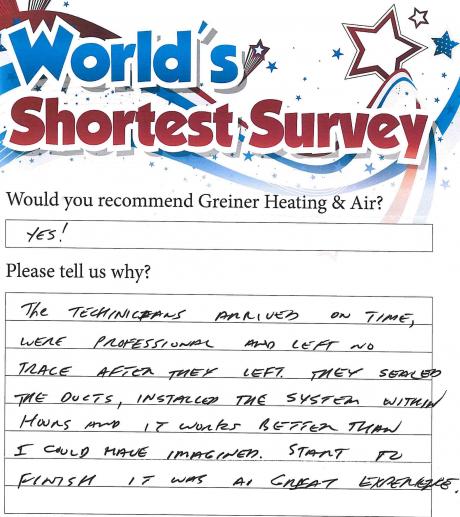 World's
Shortest Survey
Would you recommend Greiner Heating & Air?
YES!
Please tell us why?
The TECHINICEANS ARRIVED ON TIME,
WERE PROFESSIONAL AND LEFT NO
TRACE AFTER THEY LEFT. THEY SEALED
THE DUCTS, INSTALLED THE SYSTEM WITHIN
HOURS AND IT WORKS BETTER THAN
I COULD HAVE IMAGINED. START TO
FINISH IT WAS A GREAT EXPERIENCE.